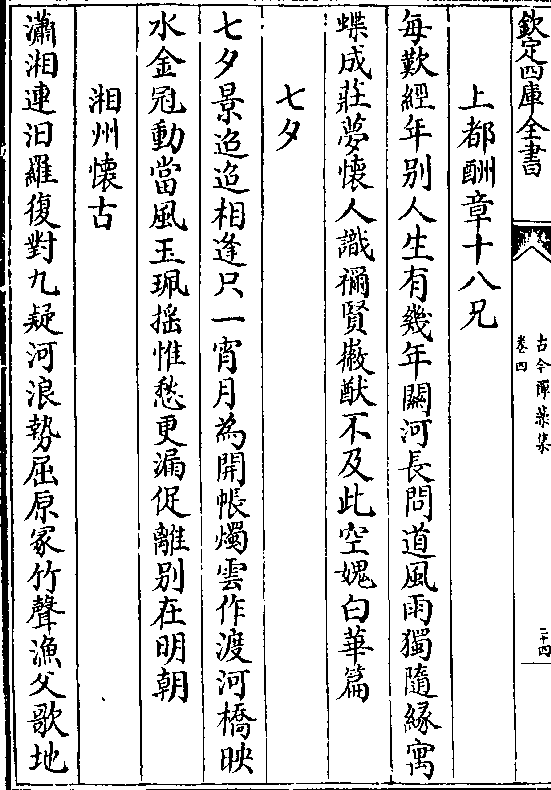 欽定四庫全書
古今禪藻集
卷四
二十四
上都酬章十八兄
每歎經年别人生有幾年關河長問道風雨獨隨緣寓
蝶成莊夢懷人識禰賢㪣猷不及此空媿白華篇
七夕
七夕景迢迢相逢只一宵月為開帳燭雲作渡河橋映
水金冠動當風玉珮揺惟愁更漏促離别在明朝
湘州懷古
瀟湘連汨羅復對九疑河浪勢屈原冢竹聲漁父歌地